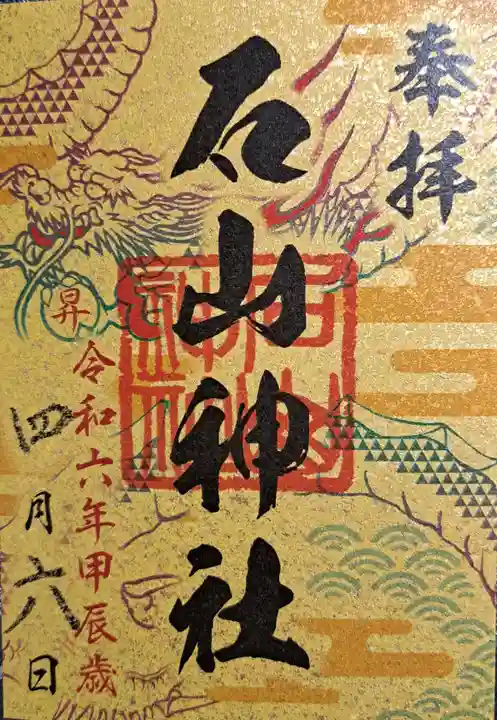 奉拝
石山神社
石山神社
昇
令和六年甲辰歳
四月六日